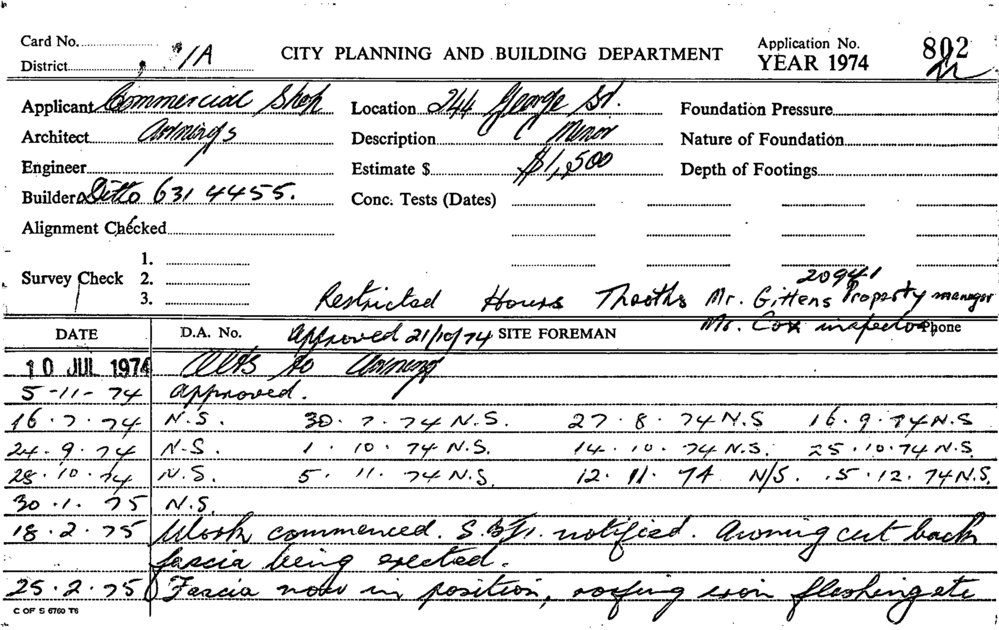 Card No.
District 1A
CITY PLANNING AND BUILDING DEPARTMENT
Application No. 802
YEAR 1974
Applicant Commercial Shop
Location 244 George St.
Foundation Pressure
Architect Awnings
Description Minor
Nature of Foundation
Engineer
Estimate $ $1,500
Depth of Footings
Builder Ditto 631 4455.
Conc. Tests (Dates)
Alignment Checked
Survey Check
1.
2.
3.
20941
Restricted Hours Tooths Mr. Gittens Property manager
Mr. Cox inspector phone
DATE
D.A. No.
Approved 21/10/74
SITE FOREMAN
10 JUL 1974 Alts to Awning
5-11-74 Approved.
16.7.74 N.S. 30.7.74 N.S. 27.8.74 N.S 16.9.74 N.S
24.9.74 N.S. 1.10.74 N.S. 14.10.74 N.S. 25.10.74 N.S.
28.10.74 N.S. 5.11.74 N.S. 12.11.74 N/S. 5.12.74 N.S.
30.1.75 N.S.
18.2.75 Work commenced. notified. Awning cut back
fascia being erected.
25.2.75 Fascia now in position, roofing iron flashing etc
C OF S 6760 T6